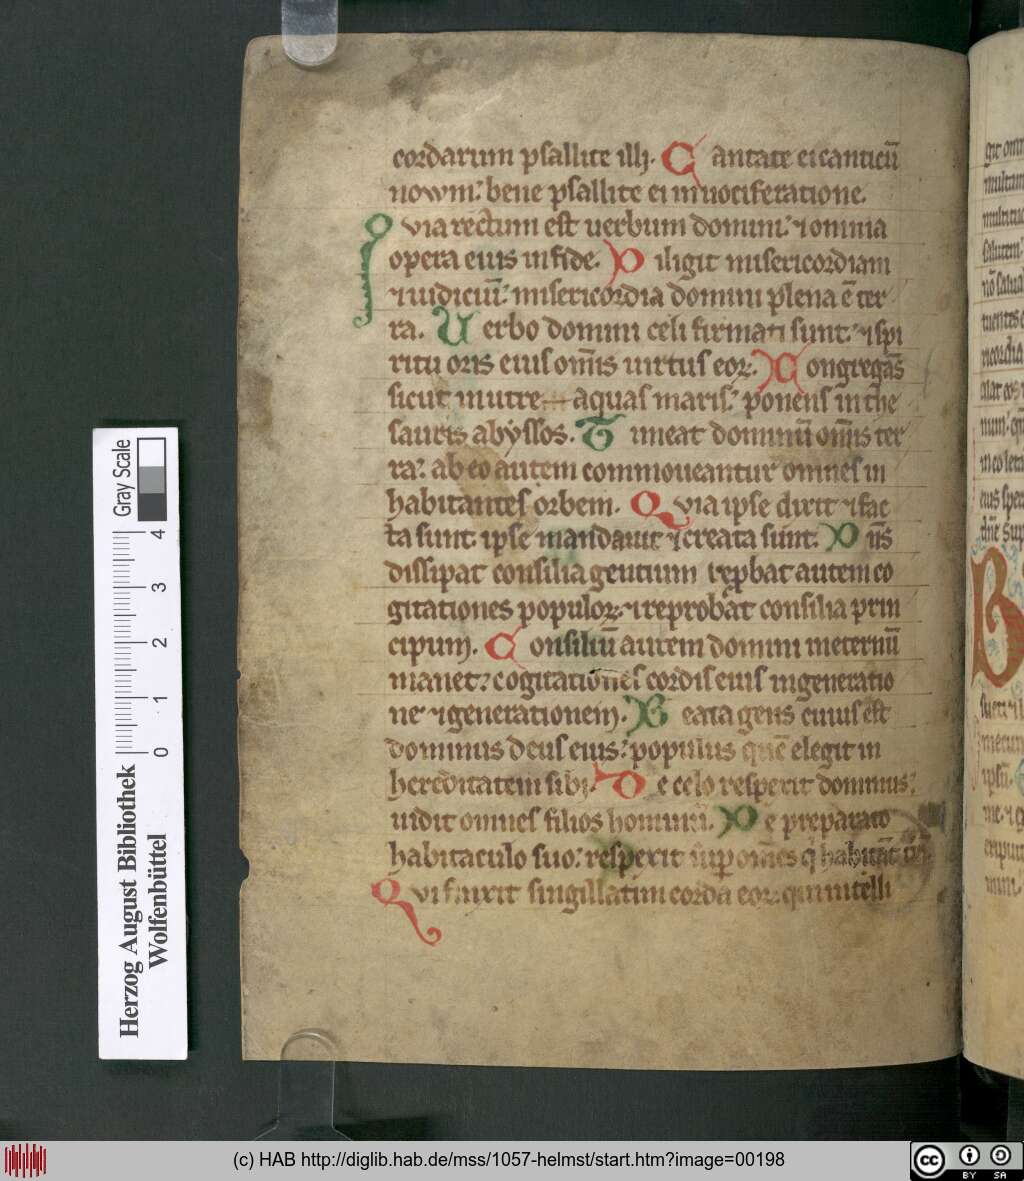 cordarum psallite illi. Cantate ei canticū
nouum: bene psallite ei in uociferatione.
Quia rectum est uerbum domini: ⁊ omnia
opera eius in fide. Diligit misericordiam
⁊ iudiciū: misericordia domini plena ē ter
ra. Uerbo domini celi firmati sunt: ⁊ spi
ritu oris eius om̄is uirtus eoꝝ. Congregās
sicut in utre aquas maris: ponens in the
sauris abyssos. Timeat dominū om̄is ter
ra: ab eo autem commoueantur omnes in
habitantes orbem. Quia ipse dixit ⁊ fac
ta sunt: ipse mandauit ⁊ creata sunt. Dn̄s
dissipat consilia gentium reꝓbat autem co
gitationes populoꝝ: ⁊ reprobat consilia prin
cipum. Consiliū autem domini in eternū
manet: cogitationes cordis eius in generatio
ne ⁊ generationem. Beata gens cuius est
dominus deus eius: populus quē elegit in
hereditatem sibi. De celo respexit dominus:
uidit omnes filios hominū. De preparato
habitaculo suo: respexit suꝑ om̄es q̇ habitāt
Qui finxit singillatim corda eoꝝ: qui intelli
git omn
multum
multitu
salutem
Herzog August Bibliothek
Wolfenbüttel
0 1 2 3 4
Gray Scale
(c) HAB http://diglib.hab.de/mss/1057-helmst/start.htm?image=00198
cc BY SA